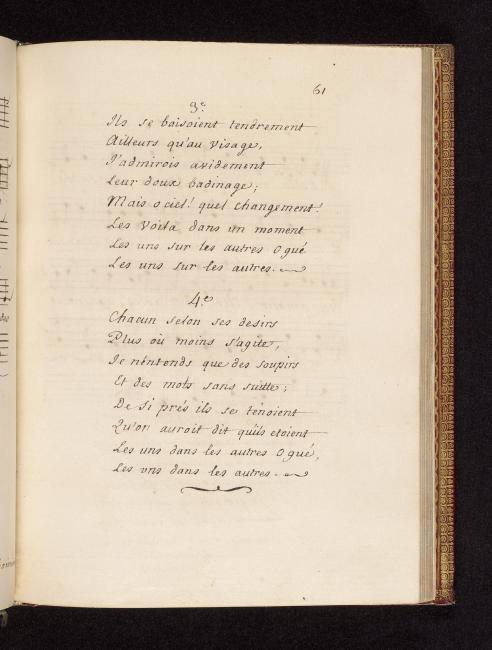 61
3.e
Ils se baisoient tendrement
Ailleurs qu'au visage,
J'admirois avidement
Leur doux badinage;
Mais o ciel! quel changement!
Les voila dans un moment
Les uns sur les autres O gué
Les uns sur les autres.
4.e
Chacun selon ses desirs
Plus où moins s'agite,
Je n'entends que des soupirs
Et des mots sans suitte;
De si prés ils se ténoient
Qu'on auroit dit qu'ils etoient
Les uns dans les autres O gué,
Les uns dans les autres.